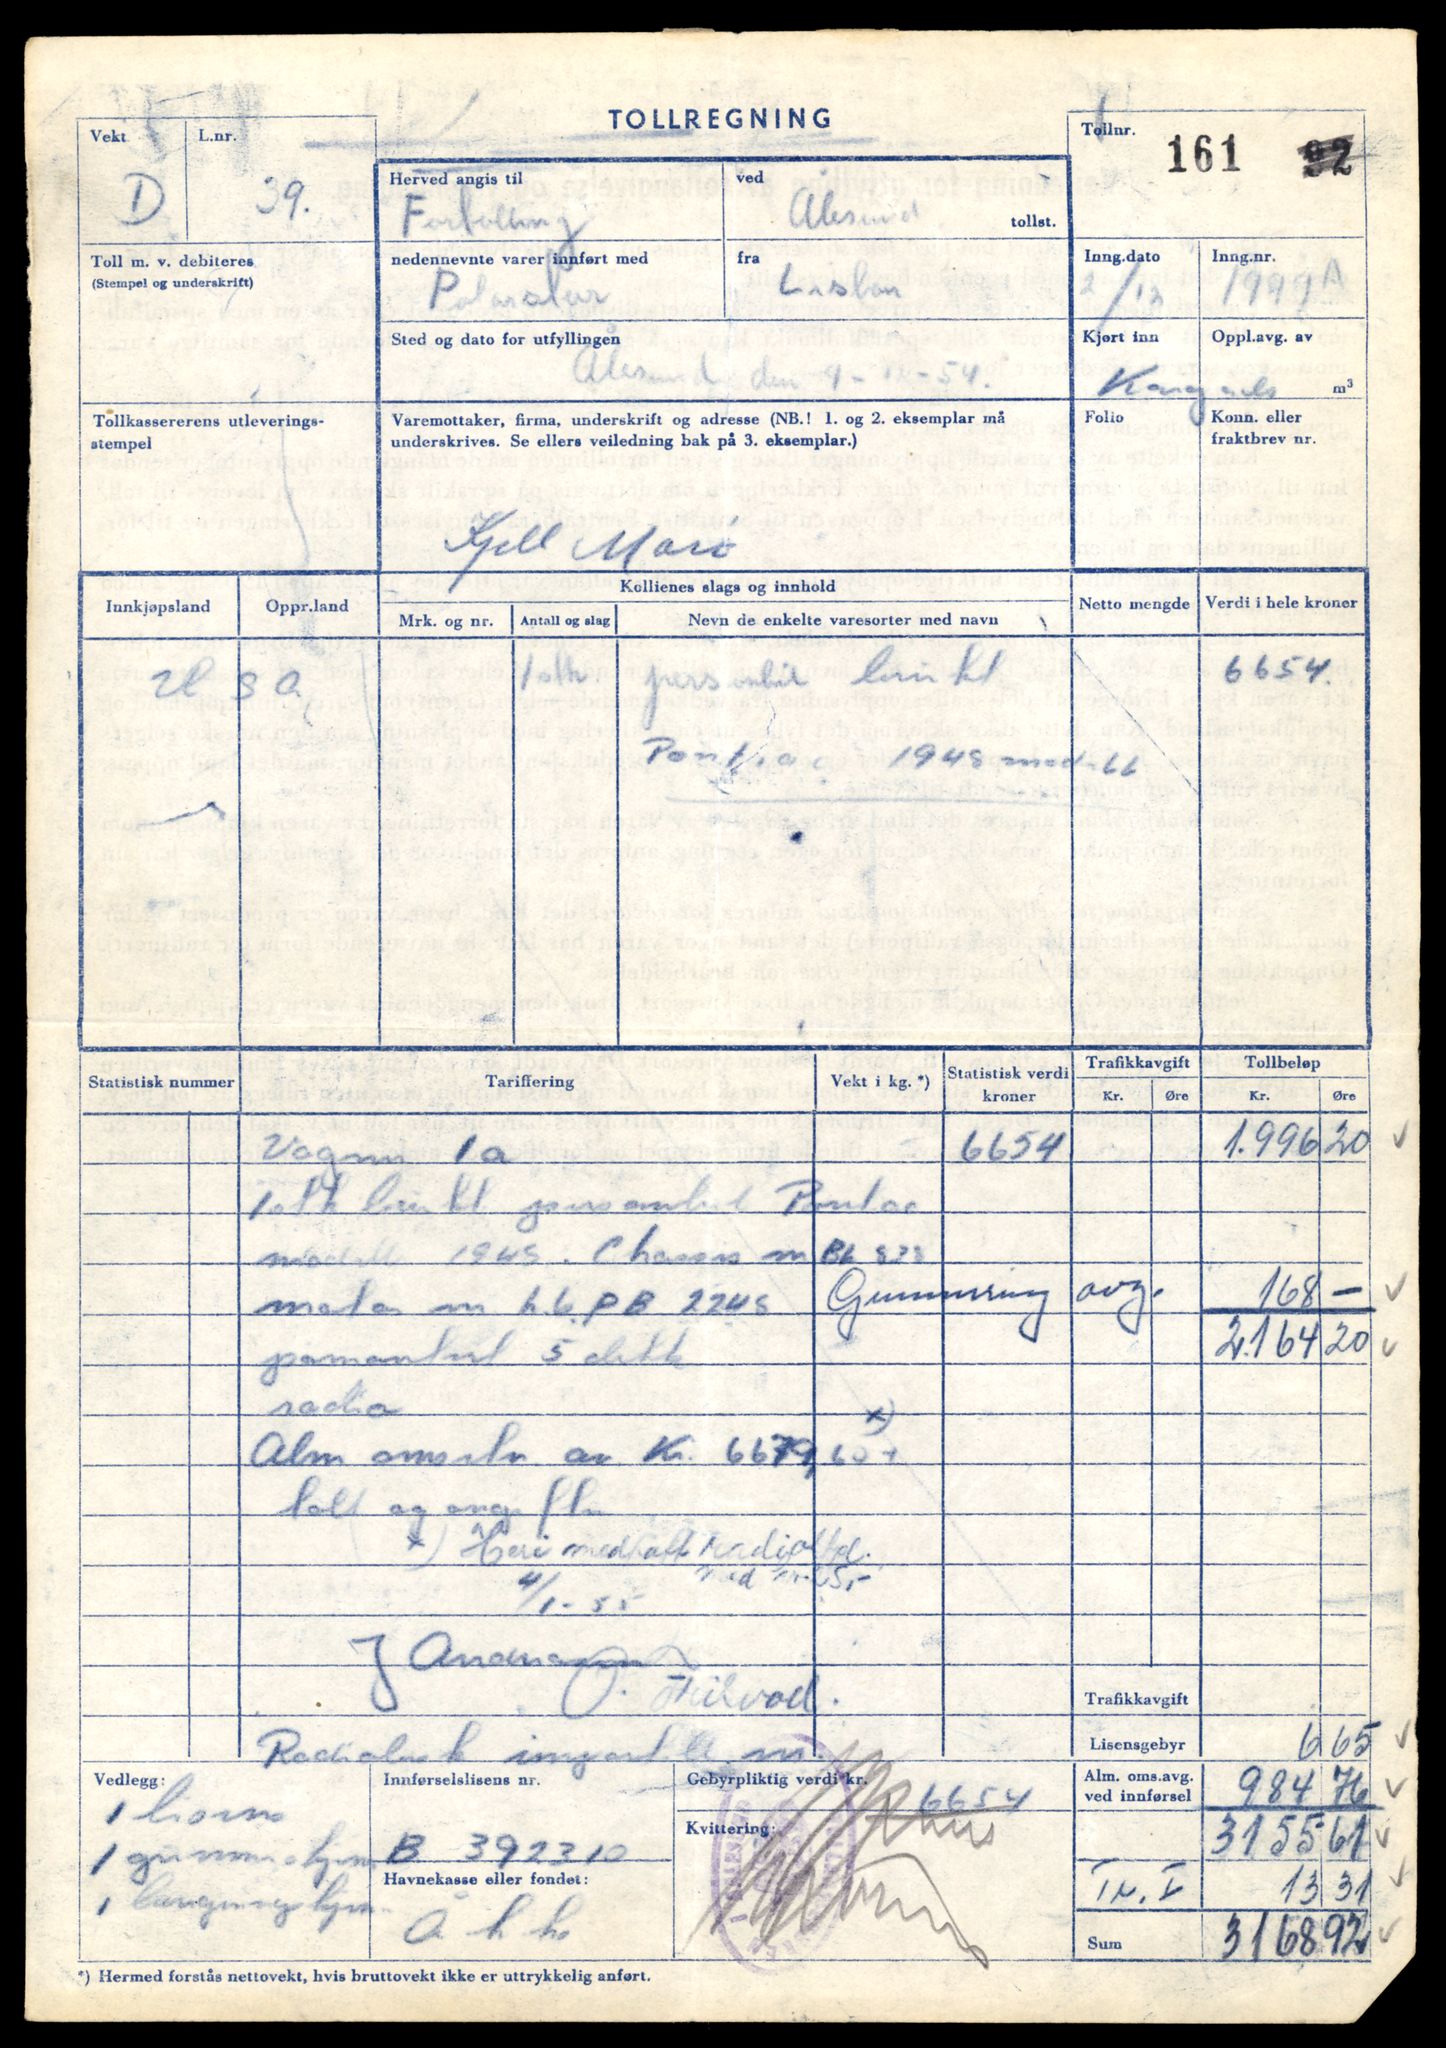 TOLLREGNING
Vekt
D
L.nr.
39.
Tollnr.
161
Herved angis til
Fortolling
ved
Ålesund
tollst.
Toll m. v. debiteres
(Stempel og underskrift)
nedennevnte varer innført med
Polarstar
fra
Inng.dato
2/12
Inng.nr.
1999A
Sted og dato for utfyllingen
Ålesund den 4-12-54.
Kjørt inn
Oppl.avg. av
m³
Tollkassererens utleverings-
stempel
Varemottaker, firma, underskrift og adresse (NB.! 1. og 2. eksemplar må
underskrives. Se ellers veiledning bak på 3. eksemplar.)
Folio
Konn. eller
fraktbrev nr.
Kjell
Innkjøpsland
Oppr.land
Kollienes slags og innhold
Mrk. og nr.
Antall og slag
Nevn de enkelte varesorter med navn
Netto mengde
Verdi i hele kroner
U S A
1 stk
personbil brukt
6654.
Pontiac 1948 modell
Statistisk nummer
Tariffering
Vekt i kg. *)
Statistisk verdi
kroner
Trafikkavgift
Kr.
Øre
Tollbeløp
Kr.
Øre
Vogner 1a
6654
1.996 20
1 stk brukt personbil Pontiac
modell 1948. Chassis nr
motor nr
Gummiring avg.
168 —
2.164 20
5 dekk
radio
x)
Alm omsetn. av Kr. 6679,60 +
toll og avgifter
x) Heri medtatt radio
4/1-55
J Andreassen
Trafikkavgift
Lisensgebyr
6 65
Vedlegg:
Innførselslisens nr.
B 392310
Gebyrpliktig verdi kr.
6654
Alm. oms.avg.
ved innførsel
984 76
Kvittering:
3155 61
Havnekasse eller fondet:
Å h k
Tr. I
13 31
Sum
3168 92
*) Hermed forstås nettovekt, hvis bruttovekt ikke er uttrykkelig anført.